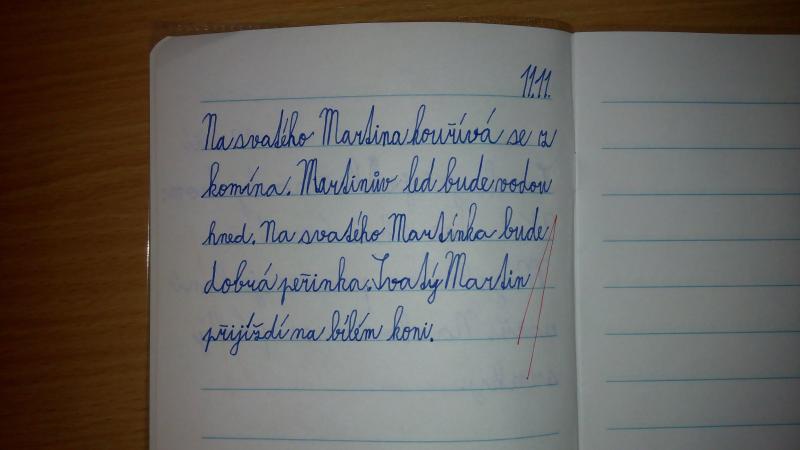 11.11.
Na svatého Martina kouřívá se z
komína. Martinův led bude vodou
hned. Na svatého Martínka bude
dobrá peřinka. Svatý Martin
přijíždí na bílém koni.